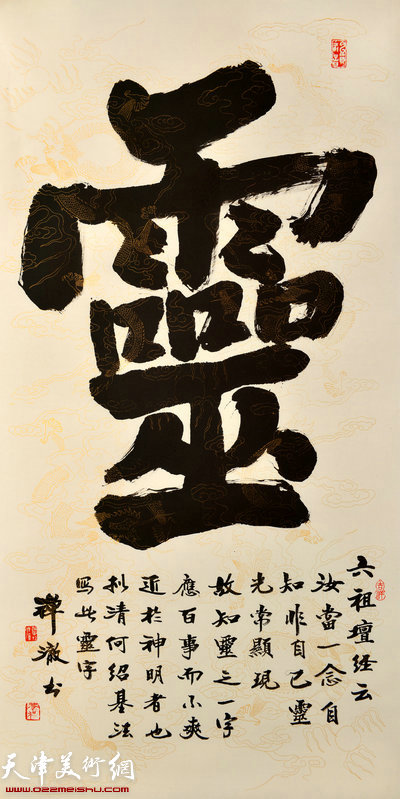 靈
六祖壇经云
汝當一念自
知非自己靈
光常顯現
故知靈之一字
應百事而不爽
近於神明者也
拟清何绍基法
写此靈字
禅澈书
天津美術網
www.022meishu.com